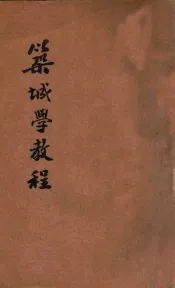 築城學教程